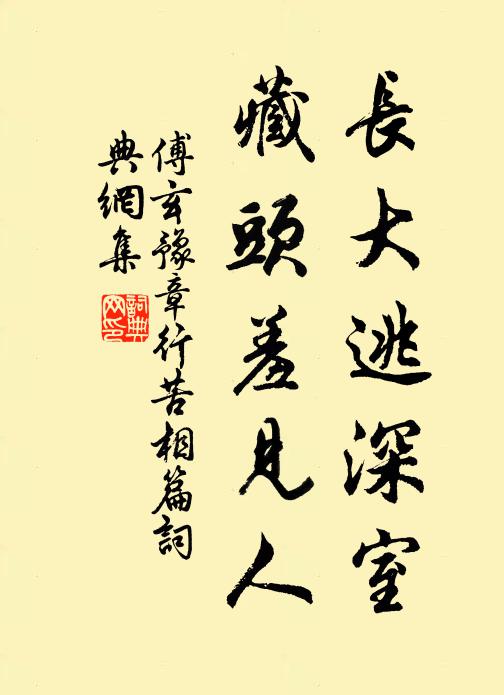 長大逃深室
藏頭羞見人
傅玄豫章行苦相篇詞
典網集
詞典
网印